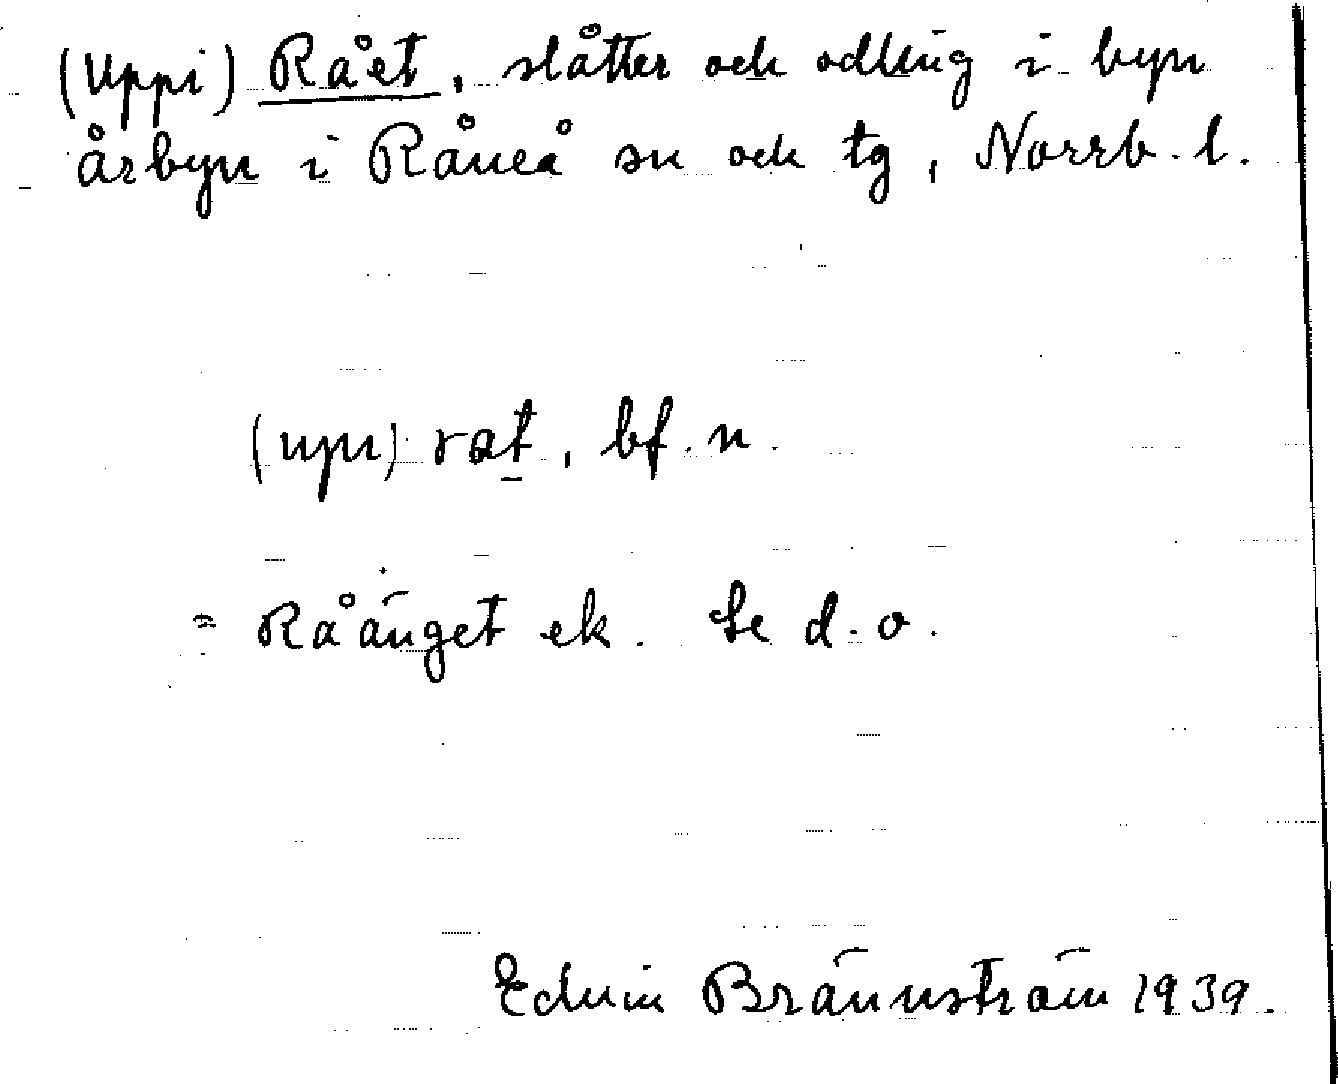 (Uppi) Rået, slåtter och odling i byn
årbyn i Råneå sn och tg, Norrb. l.
(upi) rat, bf. n.
= Råänget ek. Se d. o.
Edvin Brännström 1939.